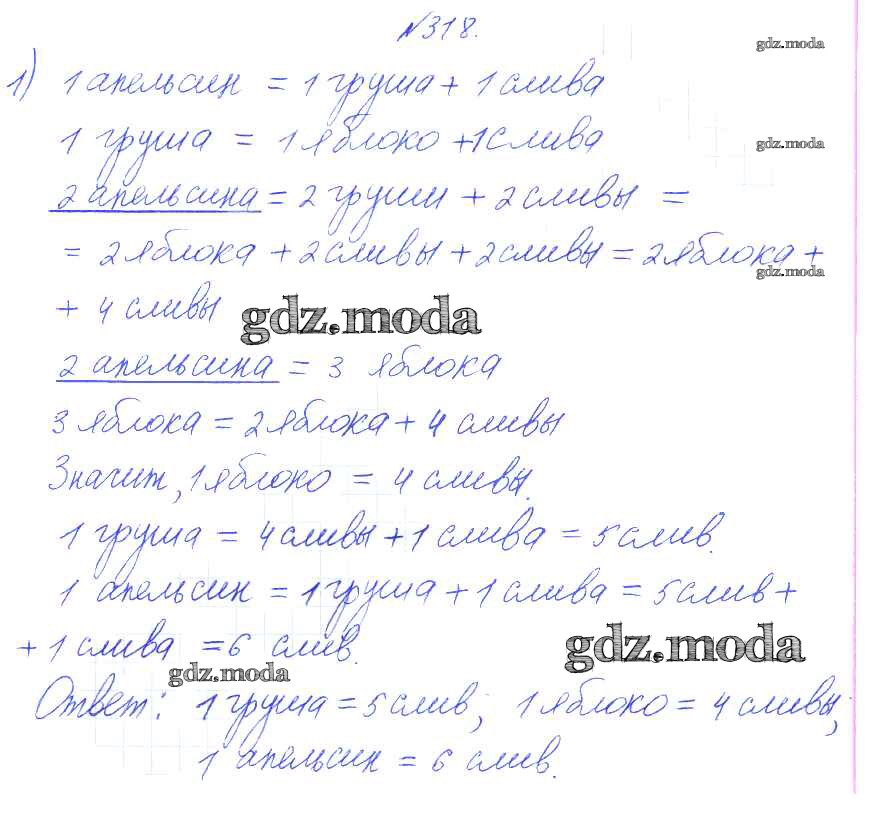 №318.
gdz.moda
1) 1 апельсин = 1 груша + 1 слива
1 груша = 1 яблоко + 1 слива
gdz.moda
2 апельсина = 2 груши + 2 сливы =
= 2 яблока + 2 сливы + 2 сливы = 2 яблока +
gdz.moda
+ 4 сливы
gdz.moda
2 апельсина = 3 яблока
3 яблока = 2 яблока + 4 сливы
Значит, 1 яблоко = 4 сливы.
1 груша = 4 сливы + 1 слива = 5 слив.
1 апельсин = 1 груша + 1 слива = 5 слив +
+ 1 слива = 6 слив.
gdz.moda
gdz.moda
Ответ: 1 груша = 5 слив; 1 яблоко = 4 сливы;
1 апельсин = 6 слив.